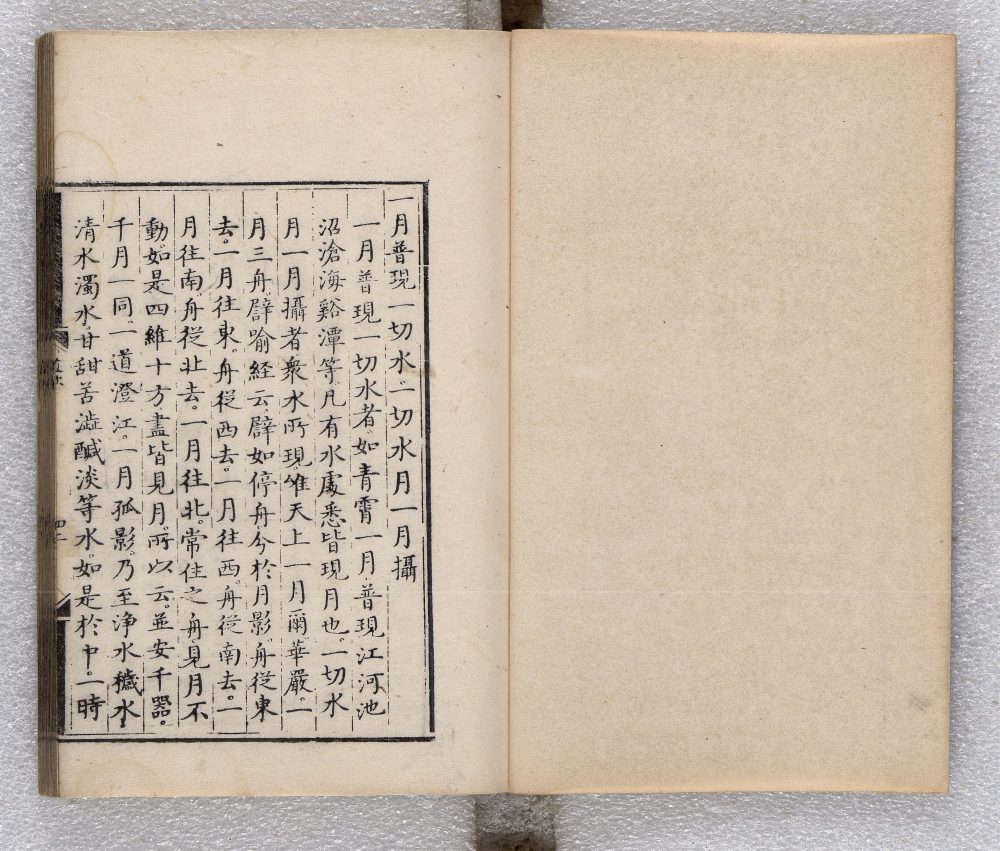 一月普現一切水。一切水月一月攝
一月普現一切水者。如青霄一月。普現江河池
沼滄海谿潭等。凡有水處悉皆現月也。一切水
月一月攝者。衆水所現。唯天上一月爾。華嚴。一
月三舟。辟喻經云。辟如停舟。分於月影。舟從東
去。一月往東。舟從西去。一月往西。舟從南去。一
月往南。舟從北去。一月往北。常住之舟。見月不
動。如是四維十方。盡皆見月。所以云。並安千器。
千月一同。一道澄江。一月孤影。乃至淨水穢水。
清水濁水。甘甜苦澁醎淡等水。如是於中。一時